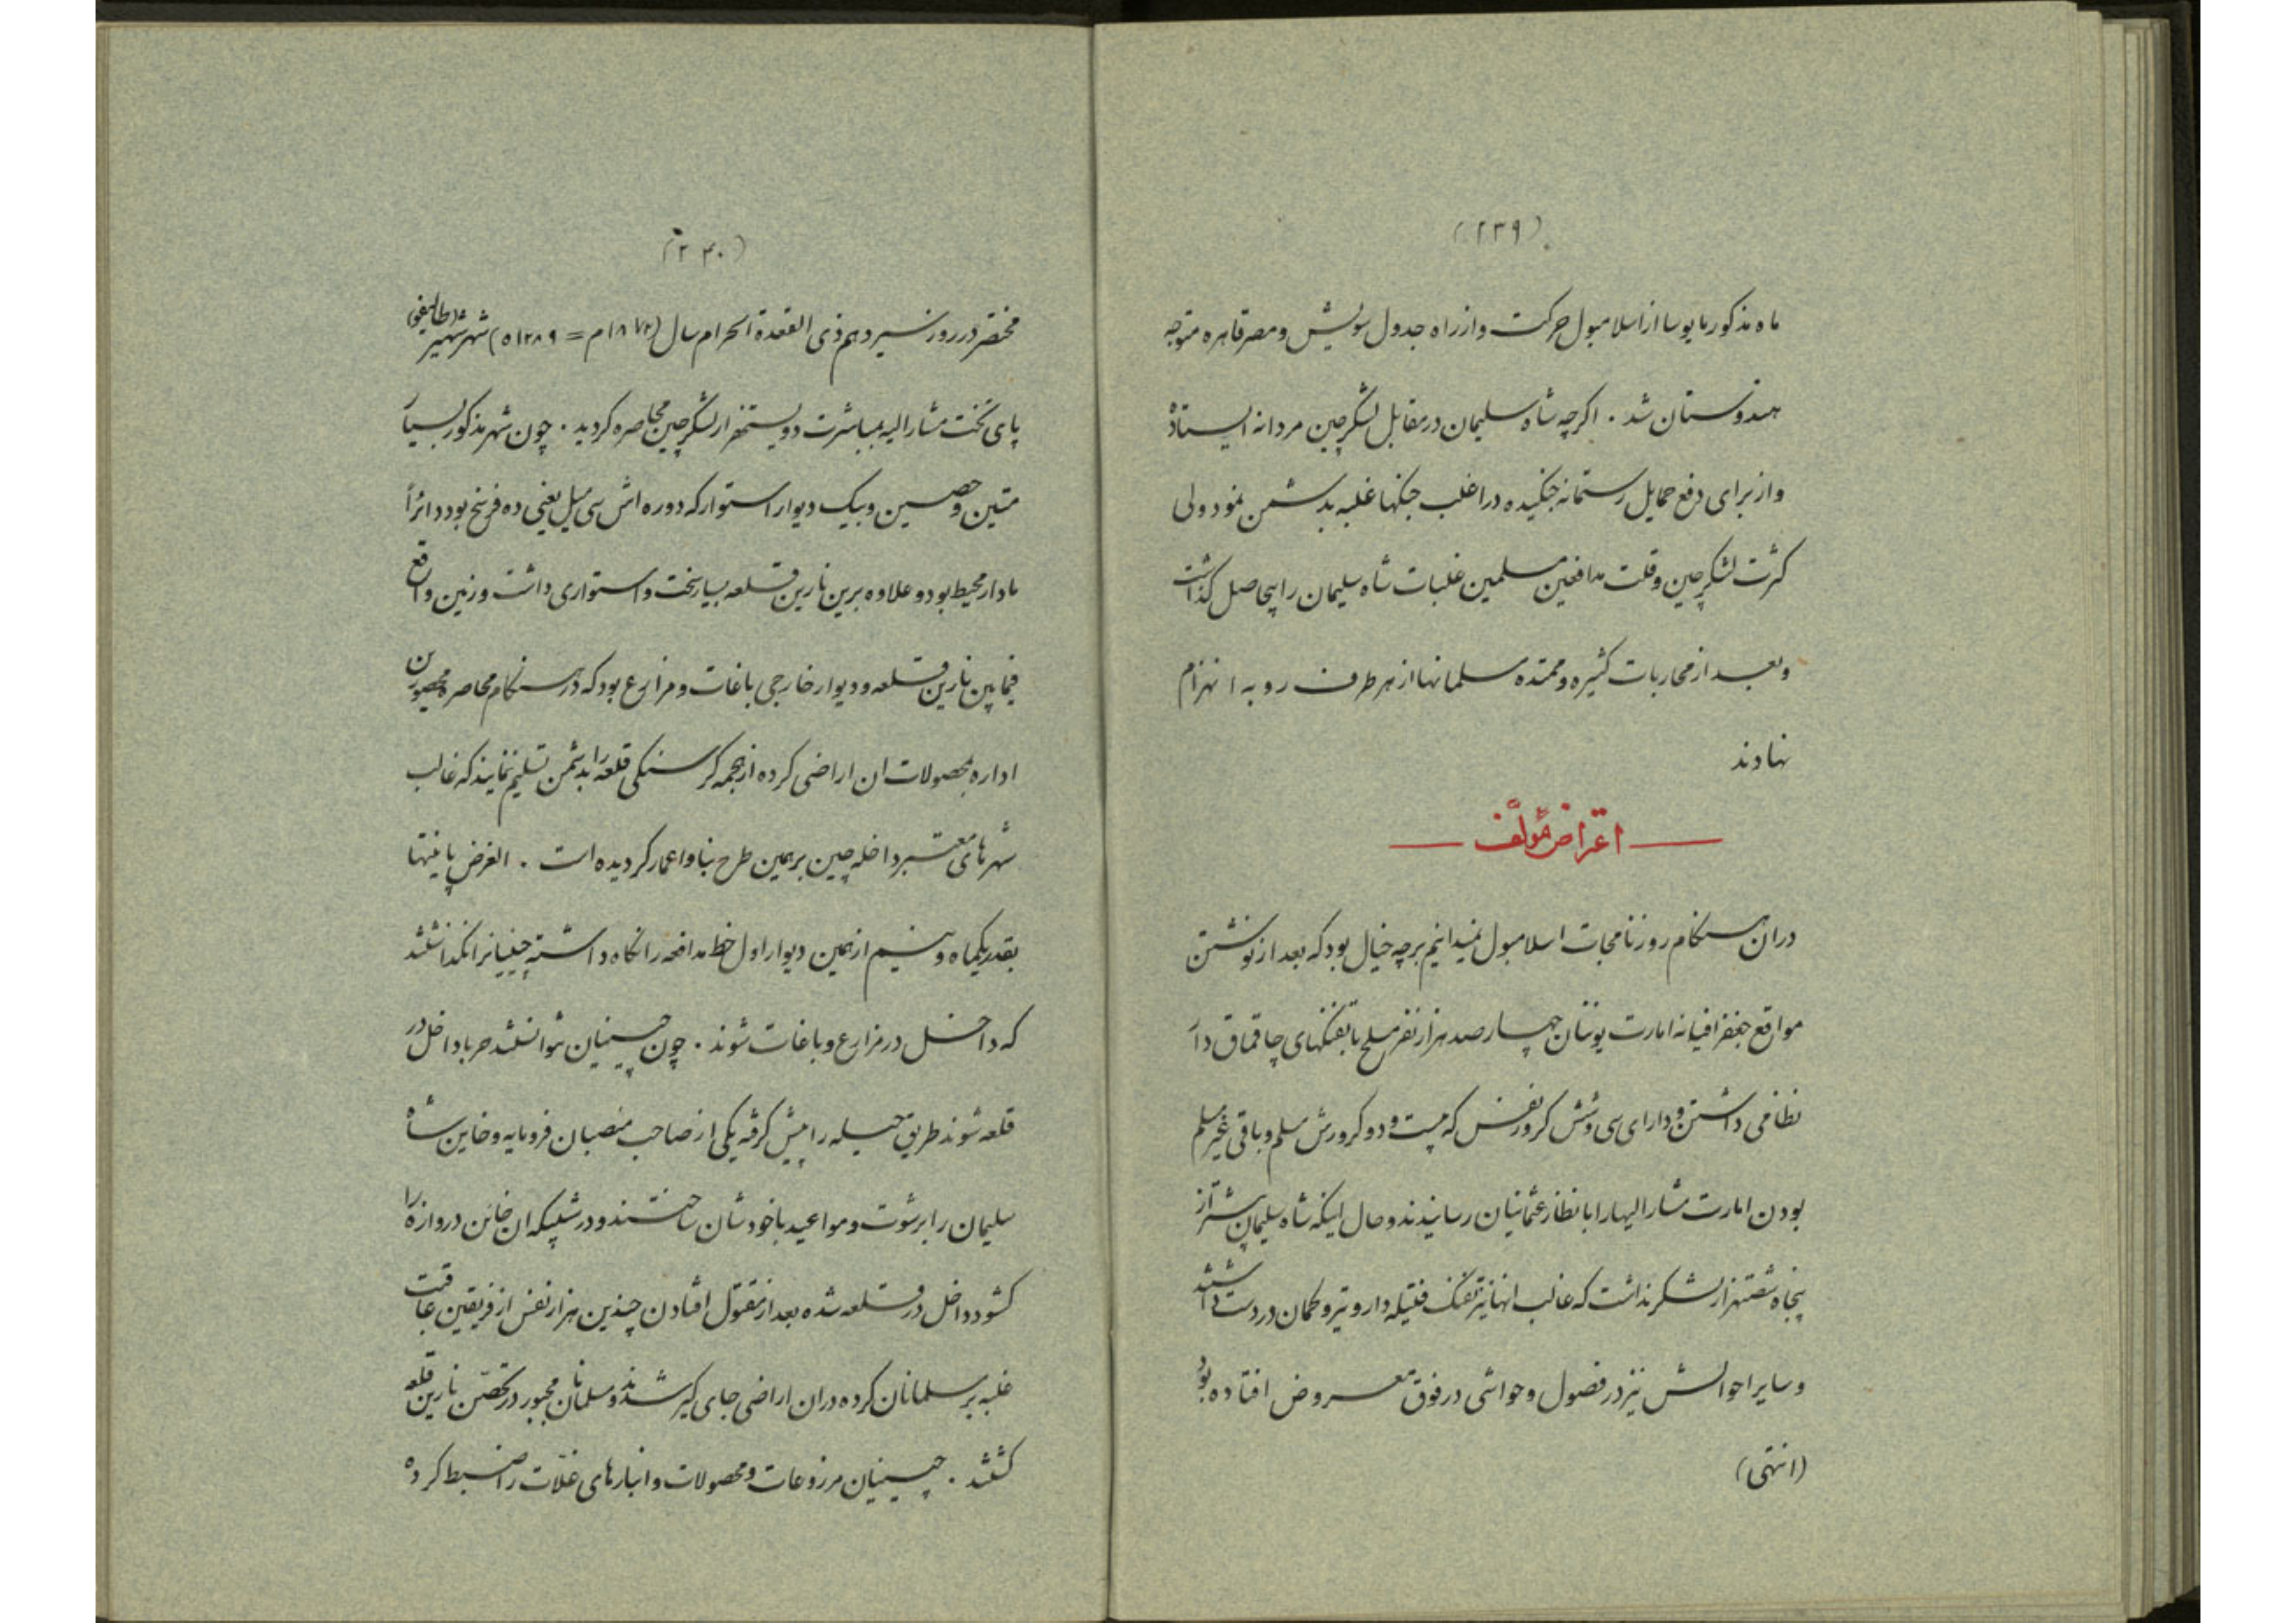 (۲۳۹)
ماه مذکور مایوسا از اسلامبول حرکت و از راه جدول سویش و مصر قاهره متوجه
هندوستان شد . اکرچه شاه سلیمان در مقابل لشکر چین مردانه ایستاده
و از برای دفع حمایل رستمانه جنکیده در اغلب جنکها غلبه بدشمن نمود ولی
کثرت لشکر چین و قلت مدافعین مسلمین غلبات شاه سلیمان را بیحاصل کذاشت
و بعد از محاربات کثیره و ممتده مسلمانها از هر طرف رو به انهزام
نهادند
اعتراض مؤلف
دران هنکام روزنامجات اسلامبول نمیدانیم برچه خیال بود که بعد از نوشتن
مواقع جغرافیانه امارت یوننان چهارصد هزار نفر مسلح با تفنکهای چاقماق دار
نظامی داشتن و دارای سی و شش کرور نفس که بیست و دو کرورش مسلم و باقی غیر مسلم
بودن امارت مشار الیها را بانظار عثمانیان رسانیدند و حال اینکه شاه سلیمان بیشتر از
پنجاه شصتهزار لشکر نداشت که غالب انها نیز تفنک فتیله دار و تیر و کمان در دست داشتند
و سایر احوالش نیز در فصول و حواشی در فوق معروض افتاده بود
(انتهی)
(۲۴۰)
مختصر در روز سیزدهم ذی القعدة الحرام سال (۱۸۷۲م = ۱۲۸۹ه) شهر شهیر (طالیفو)
پای تخت مشار الیه بمباشرت دویستهزار لشکر چین محاصره کردید . چون شهر مذکور بسیار
متین و حصین و بیک دیوار استوار که دوره اش سی میل یعنی ده فرسخ بود دائراً
مادار محیط بود و علاوه برین نارین قلعه بسیار سخت و استواری داشت و زمین واقع
فیمابین نارین قلعه و دیوار خارجی باغات و مزارع بود که در هنکام محاصره محصورین
اداره بمحصولات ان اراضی کرده از جهة کرسنکی قلعه را بدشمن تسلیم ننمایند که غالب
شهرهای معتبر داخله چین برهمین طرح بنا و اعمار کردیده است . الغرض باینها
بقدر یکماه و نیم از همین دیوار اول خط مدافعه را نکاه داشته چینیانرا نکذاشتند
که داخل در مزارع و باغات شوند . چون چینیان نتوانستند حربا داخل در
قلعه شوند طریق حیله را پیش کرفته یکی از صاحب منصبان فرومایه و خاین شاه
سلیمان را برشوت و مواعید باخودشان ساختند و در شبیکه ان خائن دروازه را
کشود داخل در قلعه شده بعد از مقتول افتادن چندین هزار نفس از فریقین عاقبت
غلبه بر مسلمانان کرده دران اراضی جای کیر شدند و مسلمانان مجبور در تحصن نارین قلعه
کشتند . چینیان مرزوعات و محصولات و انبارهای غلات را ضبط کرده